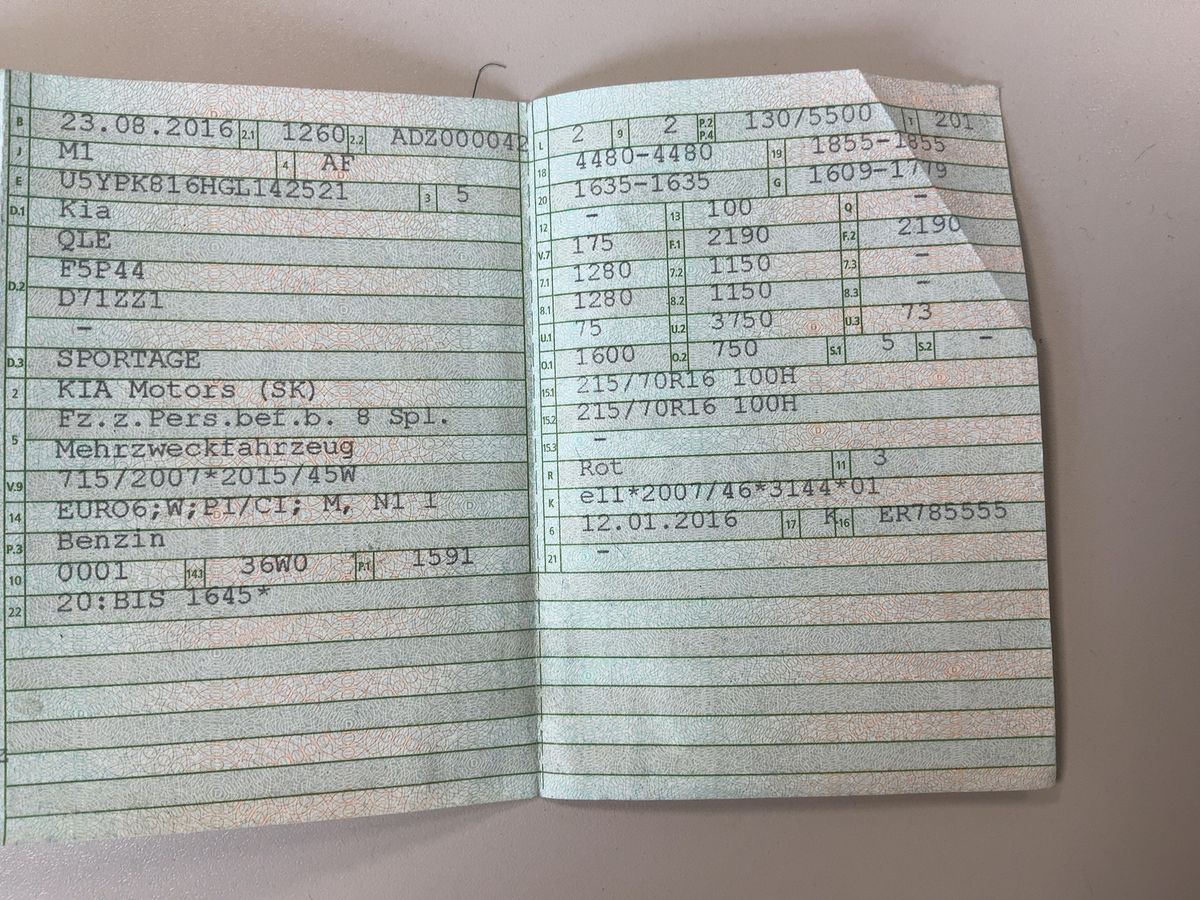 B 23.08.2016 2.1 1260 2.2 ADZ000042
J M1 4 AF
E U5YPK816HGL142521 3 5
D.1 Kia
QLE
D.2 F5P44
D71ZZ1
–
D.3 SPORTAGE
2 KIA Motors (SK)
Fz.z.Pers.bef.b. 8 Spl.
5 Mehrzweckfahrzeug
V.9 715/2007*2015/45W
14 EURO6;W;PI/CI; M, N1 I
P.3 Benzin
10 0001 14.1 36W0 P.1 1591
22 20:BIS 1645*
L 2 9 2 P.2 P.4 130/5500 T 201
18 4480-4480 19 1855-1855
20 1635-1635 G 1609-17
12 – 13 100 Q –
V.7 175 F.1 2190 F.2 2190
7.1 1280 7.2 1150 7.3 –
8.1 1280 8.2 1150 8.3 –
U.1 75 U.2 3750 U.3 73
O.1 1600 O.2 750 S.1 5 S.2 –
15.1 215/70R16 100H
15.2 215/70R16 100H
15.3 –
R Rot 11 3
K e11*2007/46*3144*01
6 12.01.2016 17 K 16 ER785555
21 –